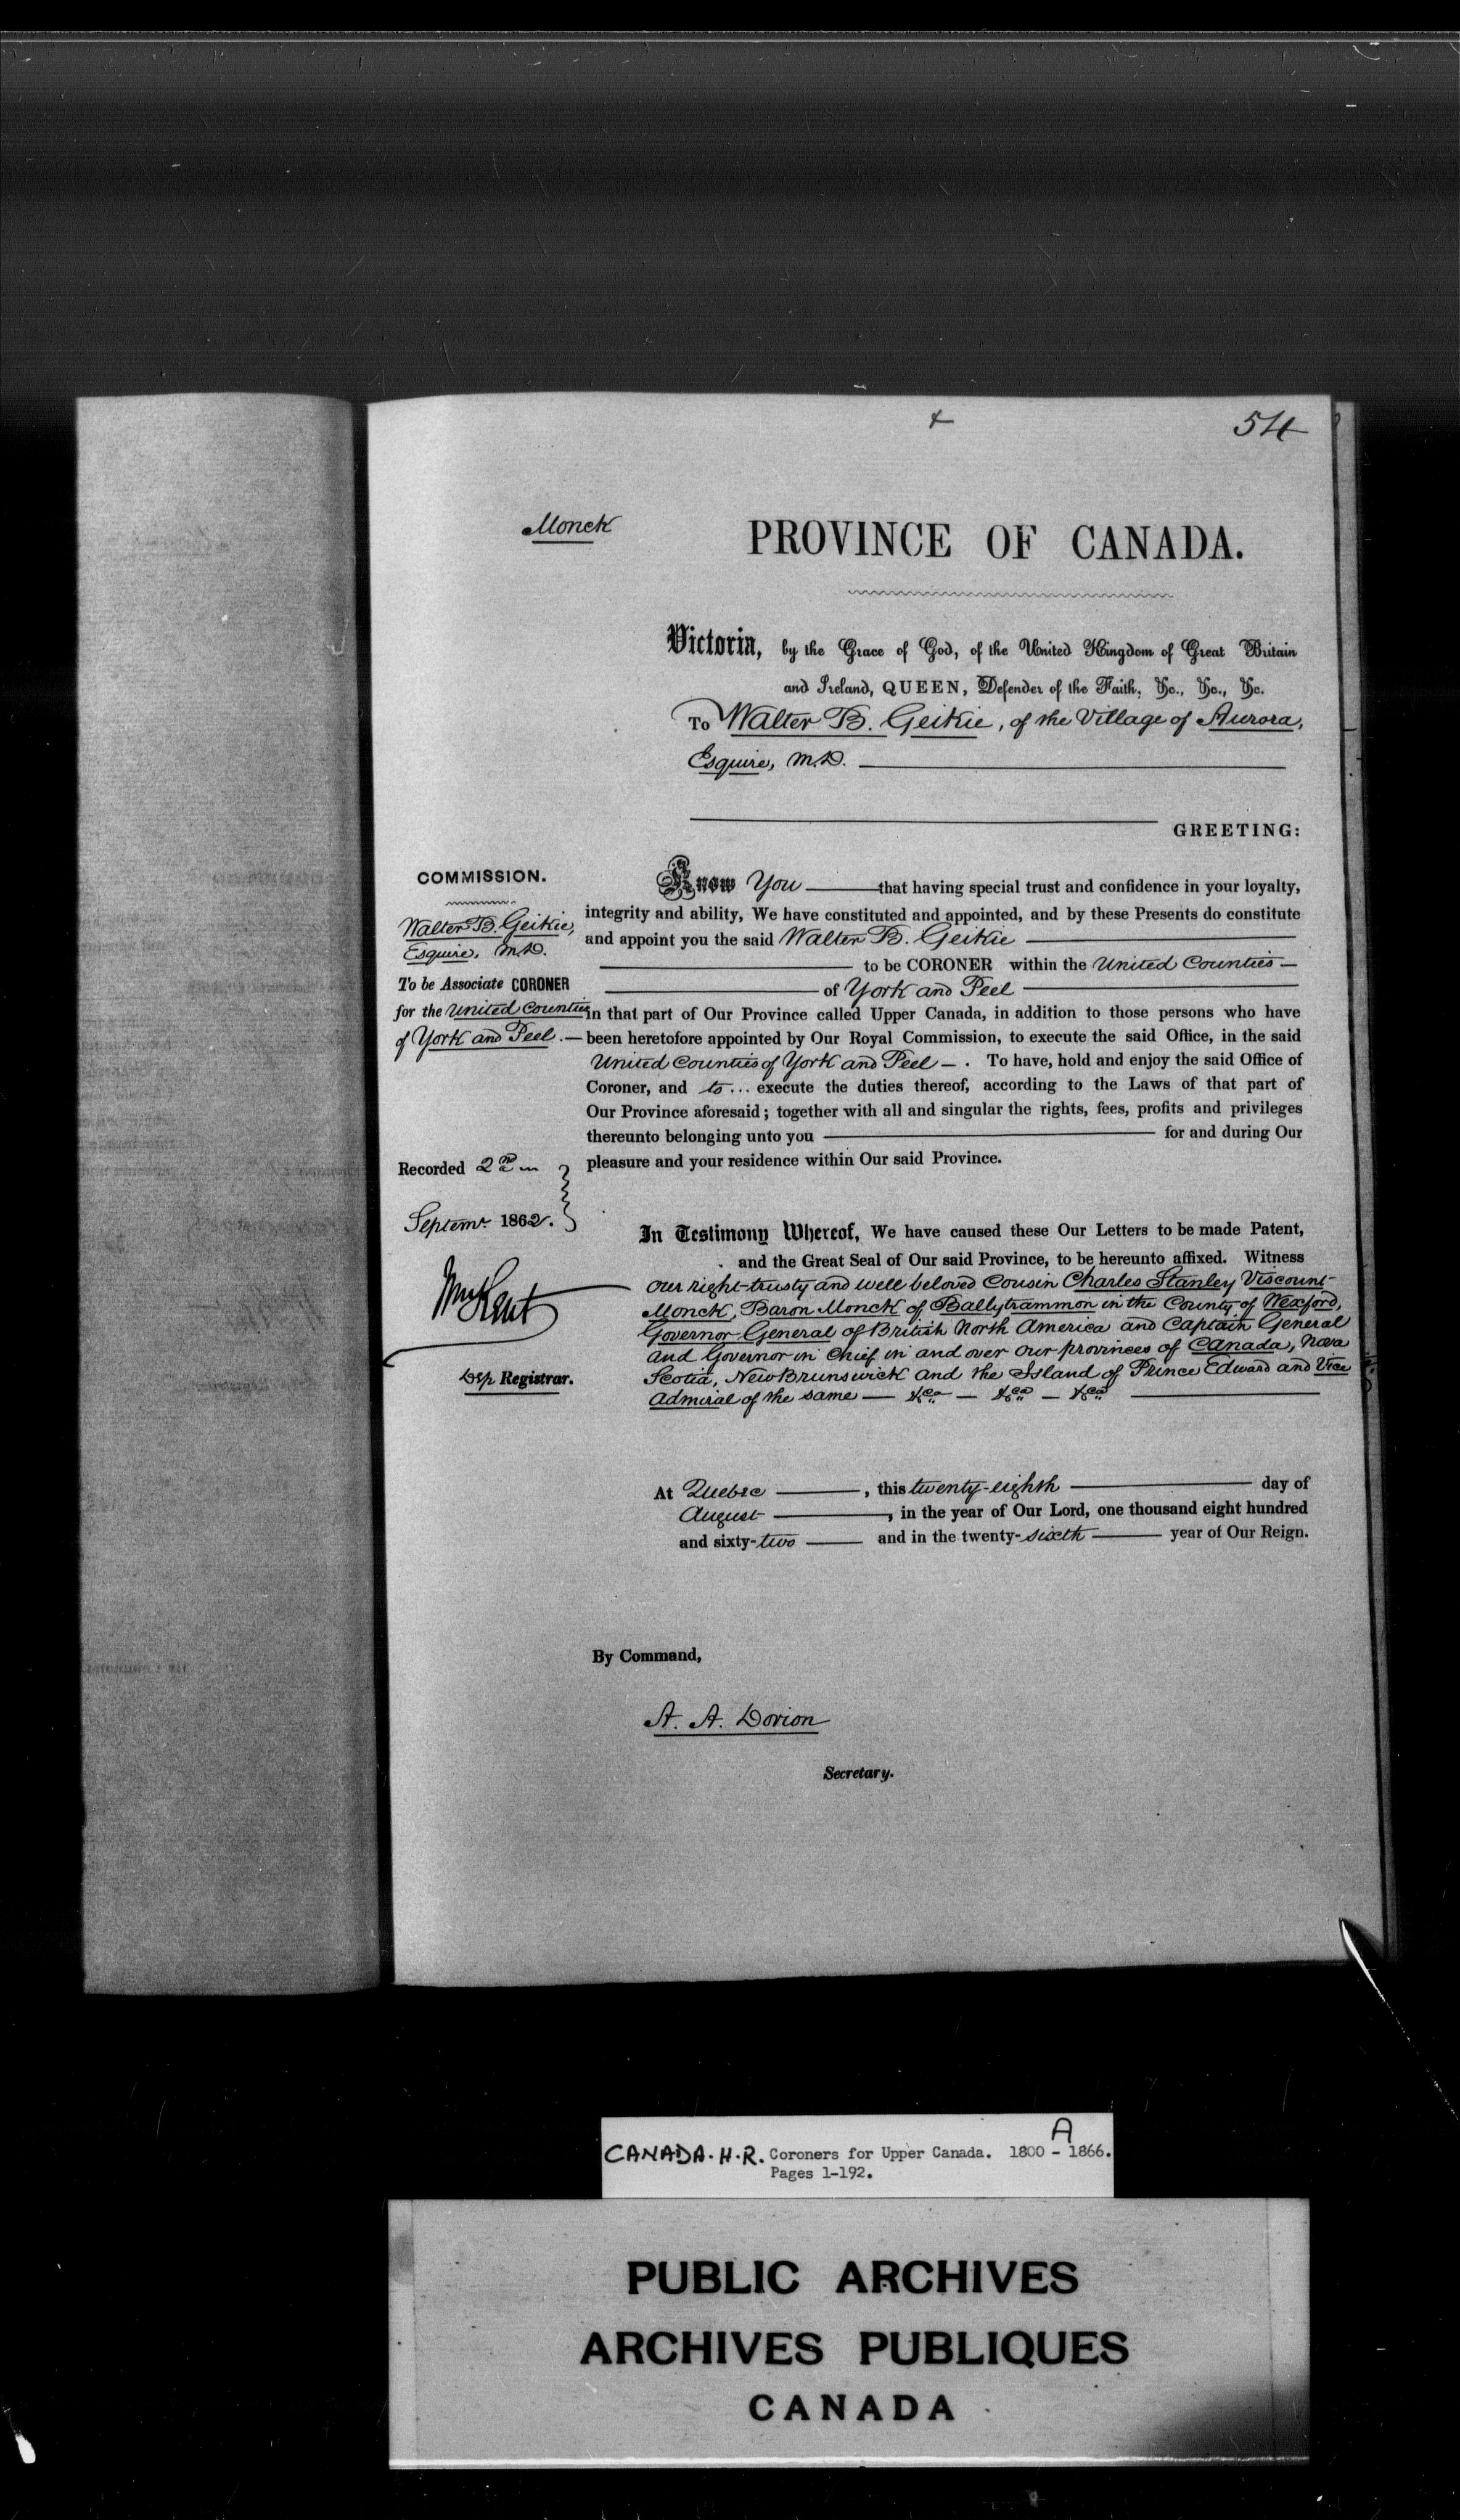 54
Monck
PROVINCE OF CANADA.
Victoria, by the Grace of God, of the United Kingdom of Great Britain
and Ireland, QUEEN, Defender of the Faith, &c., &c., &c.
To Walter B. Geikie, of the Village of Aurora,
Esquire, M.D.
GREETING:
COMMISSION.
Walter B. Geikie,
Esquire, M.D.
To be Associate CORONER
for the United Counties
of York and Peel.
Know You that having special trust and confidence in your loyalty,
integrity and ability, We have constituted and appointed, and by these Presents do constitute
and appoint you the said Walter B. Geikie
to be CORONER within the United Counties
of York and Peel
in that part of Our Province called Upper Canada, in addition to those persons who have
been heretofore appointed by Our Royal Commission, to execute the said Office, in the said
United Counties of York and Peel. To have, hold and enjoy the said Office of
Coroner, and to... execute the duties thereof, according to the Laws of that part of
Our Province aforesaid; together with all and singular the rights, fees, profits and privileges
thereunto belonging unto you for and during Our
pleasure and your residence within Our said Province.
Recorded 2nd
Septemr. 1862.
Wm Kent
Dep Registrar.
In Testimony Whereof, We have caused these Our Letters to be made Patent,
and the Great Seal of Our said Province, to be hereunto affixed. Witness
Our right-trusty and well beloved Cousin Charles Stanley Viscount
Monck, Baron Monck of Ballytrammon in the County of Wexford,
Governor General of British North America and Captain General
and Governor in Chief in and over our provinces of Canada, Nova
Scotia, New Brunswick and the Island of Prince Edward and Vice
Admiral of the same — &ca — &ca — &ca
At Quebec, this twenty-eighth day of
August, in the year of Our Lord, one thousand eight hundred
and sixty-two and in the twenty-sixth year of Our Reign.
By Command,
A. A. Dorion
Secretary.
CANADA. H. R. Coroners for Upper Canada. 1800 - A 1866.
Pages 1-192.
PUBLIC ARCHIVES
ARCHIVES PUBLIQUES
CANADA